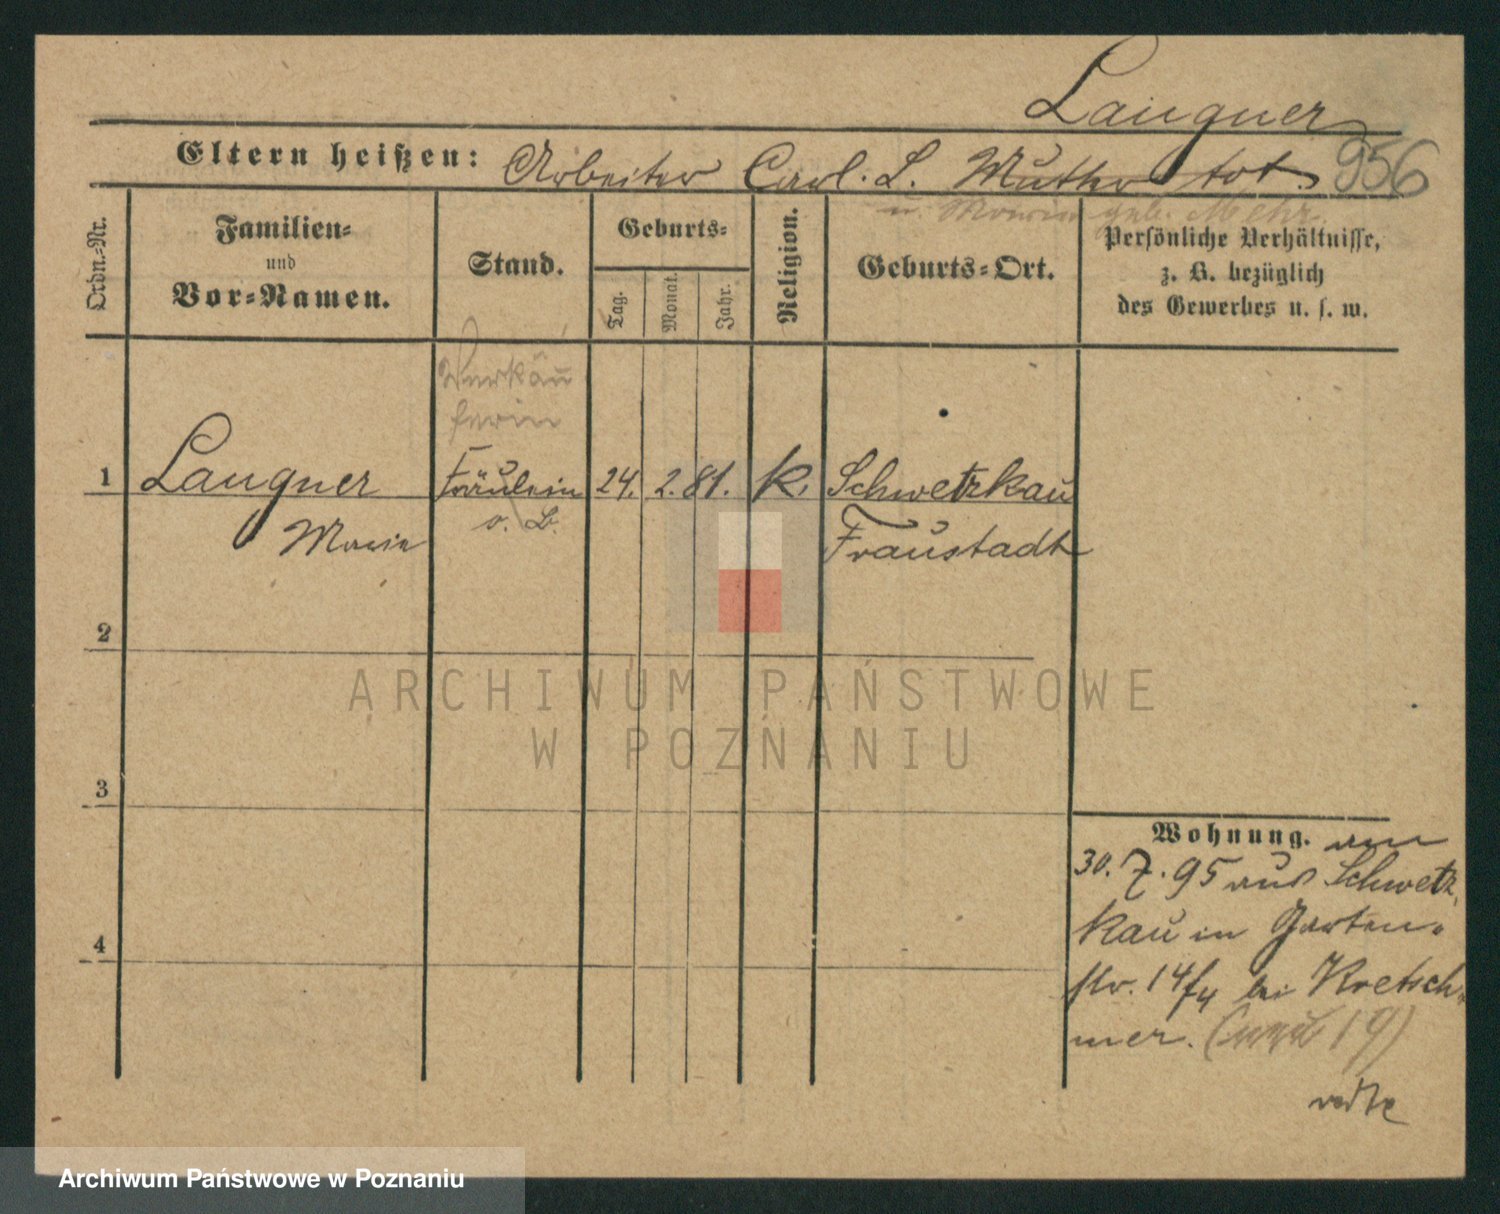 Laugner
Eltern heißen: Arbeiter Carl. L. Mutter tot. 956
u. Maria geb. Mehr.
Ordn.-Nr.
Familien-
und
Vor-Namen.
Stand.
Geburts-
Tag.
Monat.
Jahr.
Religion.
Geburts-Ort.
Persönliche Verhältnisse,
z. B. bezüglich
des Gewerbes u. s. w.
Verkäu
ferin
1 Laugner Fräulein 24. 2. 81. k. Schwetzkau
Marie o. B. Fraustadt
2
ARCHIWUM PAŃSTWOWE
W POZNANIU
3
Wohnung. am
30. 7. 95 aus Schwetz,
kau in Garten-
str. 14/4 bei Kretsch-
mer. 19)
4
Archiwum Państwowe w Poznaniu